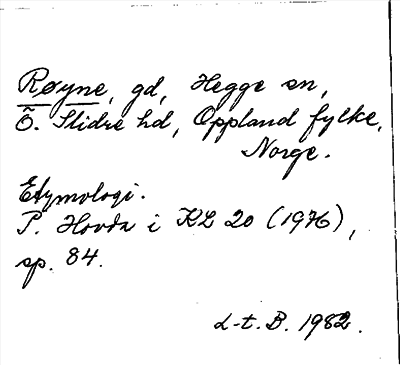 Røyne, gd, Hegge sn,
Ö. Slidre hd, Oppland fylke,
Norge.
Etymologi.
P. Hovda i KL 20 (1976),
sp. 84.
L-t. B. 1982.